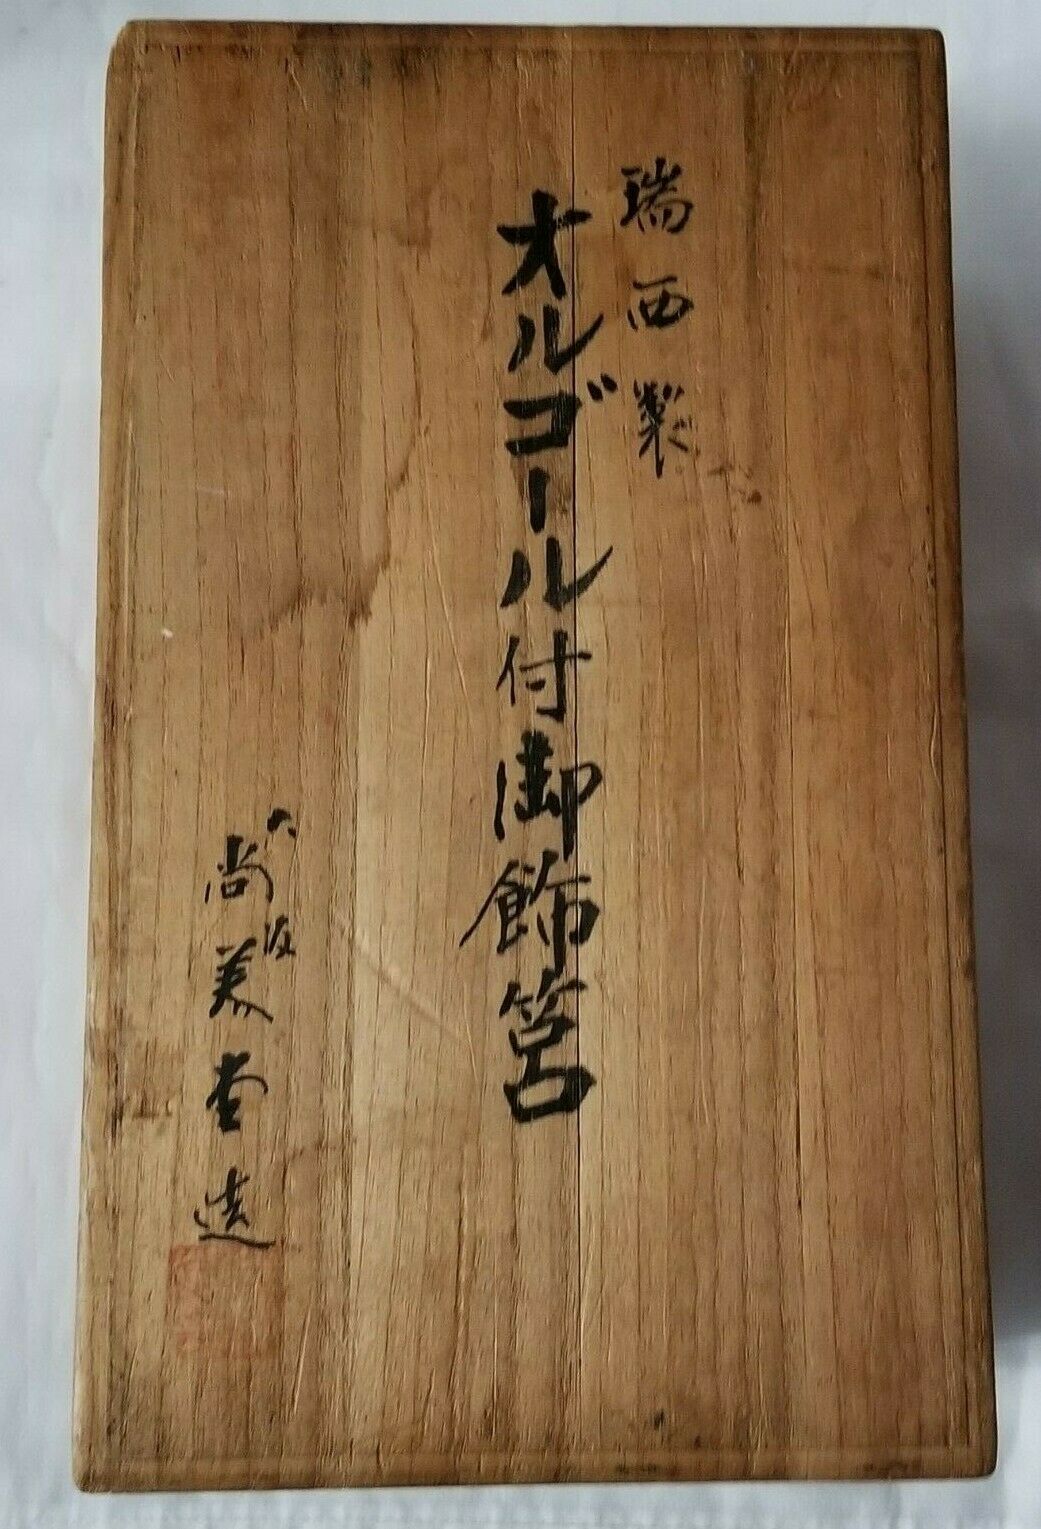 瑞西製
オルゴール付御飾筥
大阪
尚美堂造